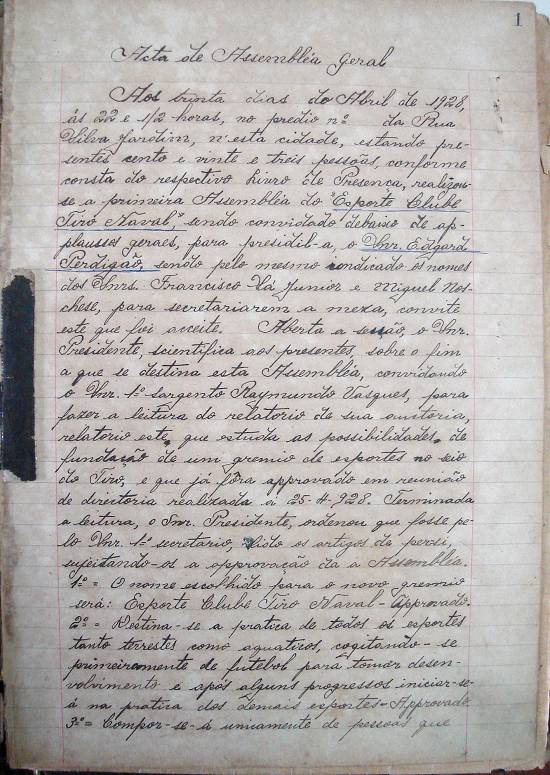 1
Acta de Assembléa Geral
Aos trinta dias do Abril de 1928,
ás 22 e 1/2 horas, no predio nº da Rua
Silva Jardim, n'esta cidade, estando pre-
sentes cento e vinte e treis pessôas, conforme
consta do respectivo Livro de Presença, realizou-
se a primeira Assembléa do "Esporte Clube
Tiro Naval", sendo convidado debaixo de ap-
plausos geraes, para presidil-a, o Snr. Edgard
Perdigão, sendo pelo mesmo indicado os nomes
dos Snrs. Francisco Sá Junior e Miguel Nos-
chese, para secretariarem a meza, convite
este que foi acceite. Aberta a sessão, o Snr.
Presidente, scientifica aos presentes, sobre o fim
a que se destina esta Assembléa, convidando
o Snr. 1º Sargento Raymundo Vasques, para
fazer a leitura do relatorio de sua autoria,
relatorio este, que estuda as possibilidades, de
fundação de um gremio de esportes no seio
do Tiro, e que já fôra approvado em reunião
de directoria realizada á 25-4-928. Terminada
a leitura, o Snr. Presidente, ordenou que fosse pe-
lo Snr. 1º secretario, lido os artigos de persi,
sujeitando-os a approvação da a Assembléa.
1º = O nome escolhido para o novo gremio
será: Esporte Clube Tiro Naval - Approvado.
2º = Destina-se a pratica de todos os esportes
tanto terrestes como aquaticos, cogitando-se
primeiramente de futebol para tomar desen-
volvimento e após alguns progressos iniciar-se-
á na pratica dos demais esportes = Approvado
3º = Compor-se-á unicamente de pessoas que